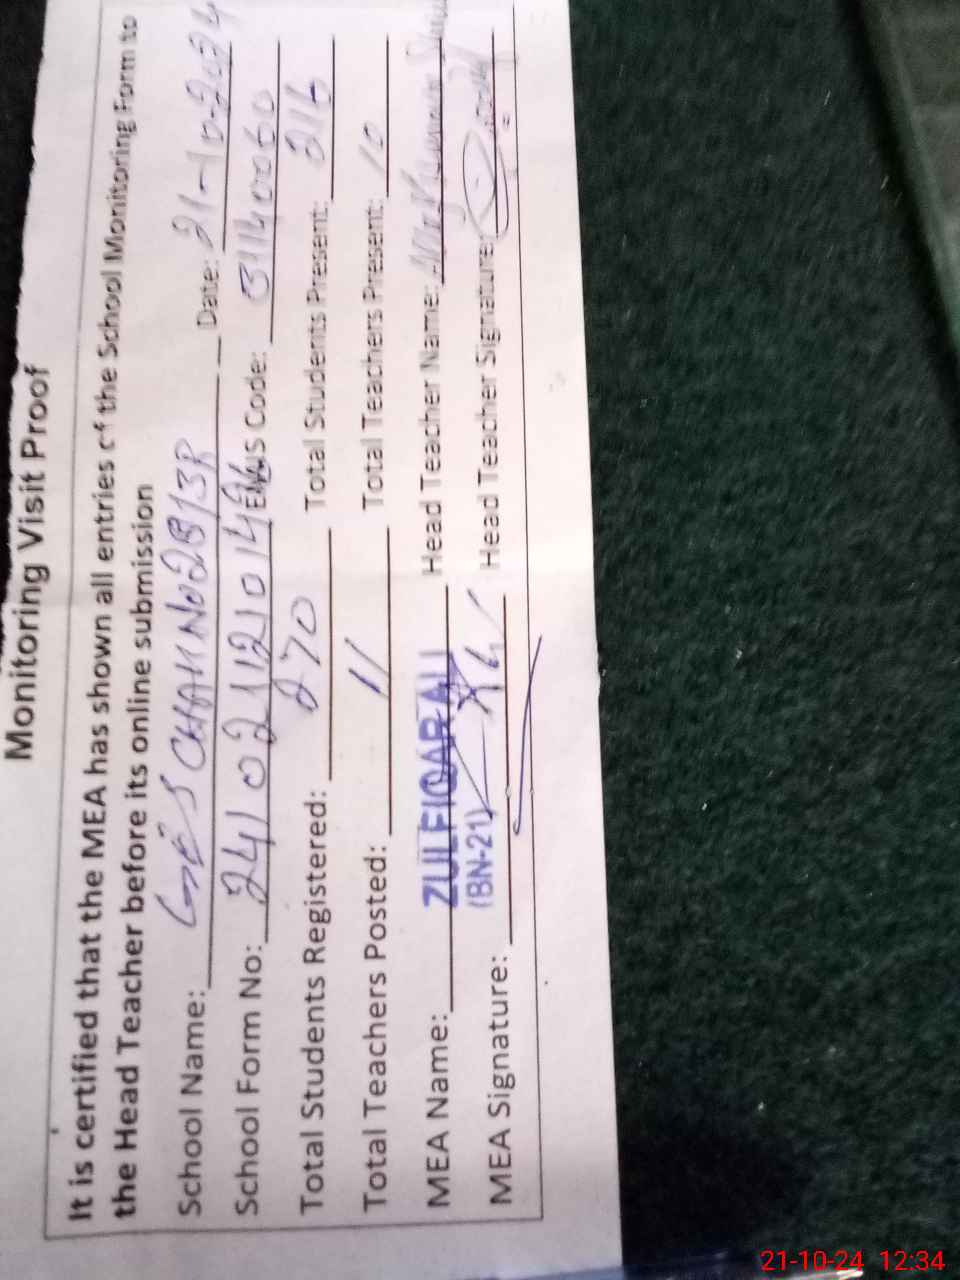 Monitoring Visit Proof
It is certified that the MEA has shown all entries of the School Monitoring Form to
the Head Teacher before its online submission
School Name: GES CHAH NO 2B/3R Date: 21-10-2024
School Form No: Code: 31140060
Total Students Registered: 270 Total Students Present: 216
Total Teachers Posted: 11 Total Teachers Present: 10
MEA Name: ZULFIQAR ALI Head Teacher Name:
(BN-21)
MEA Signature: Head Teacher Signature:
21-10-24 12:34